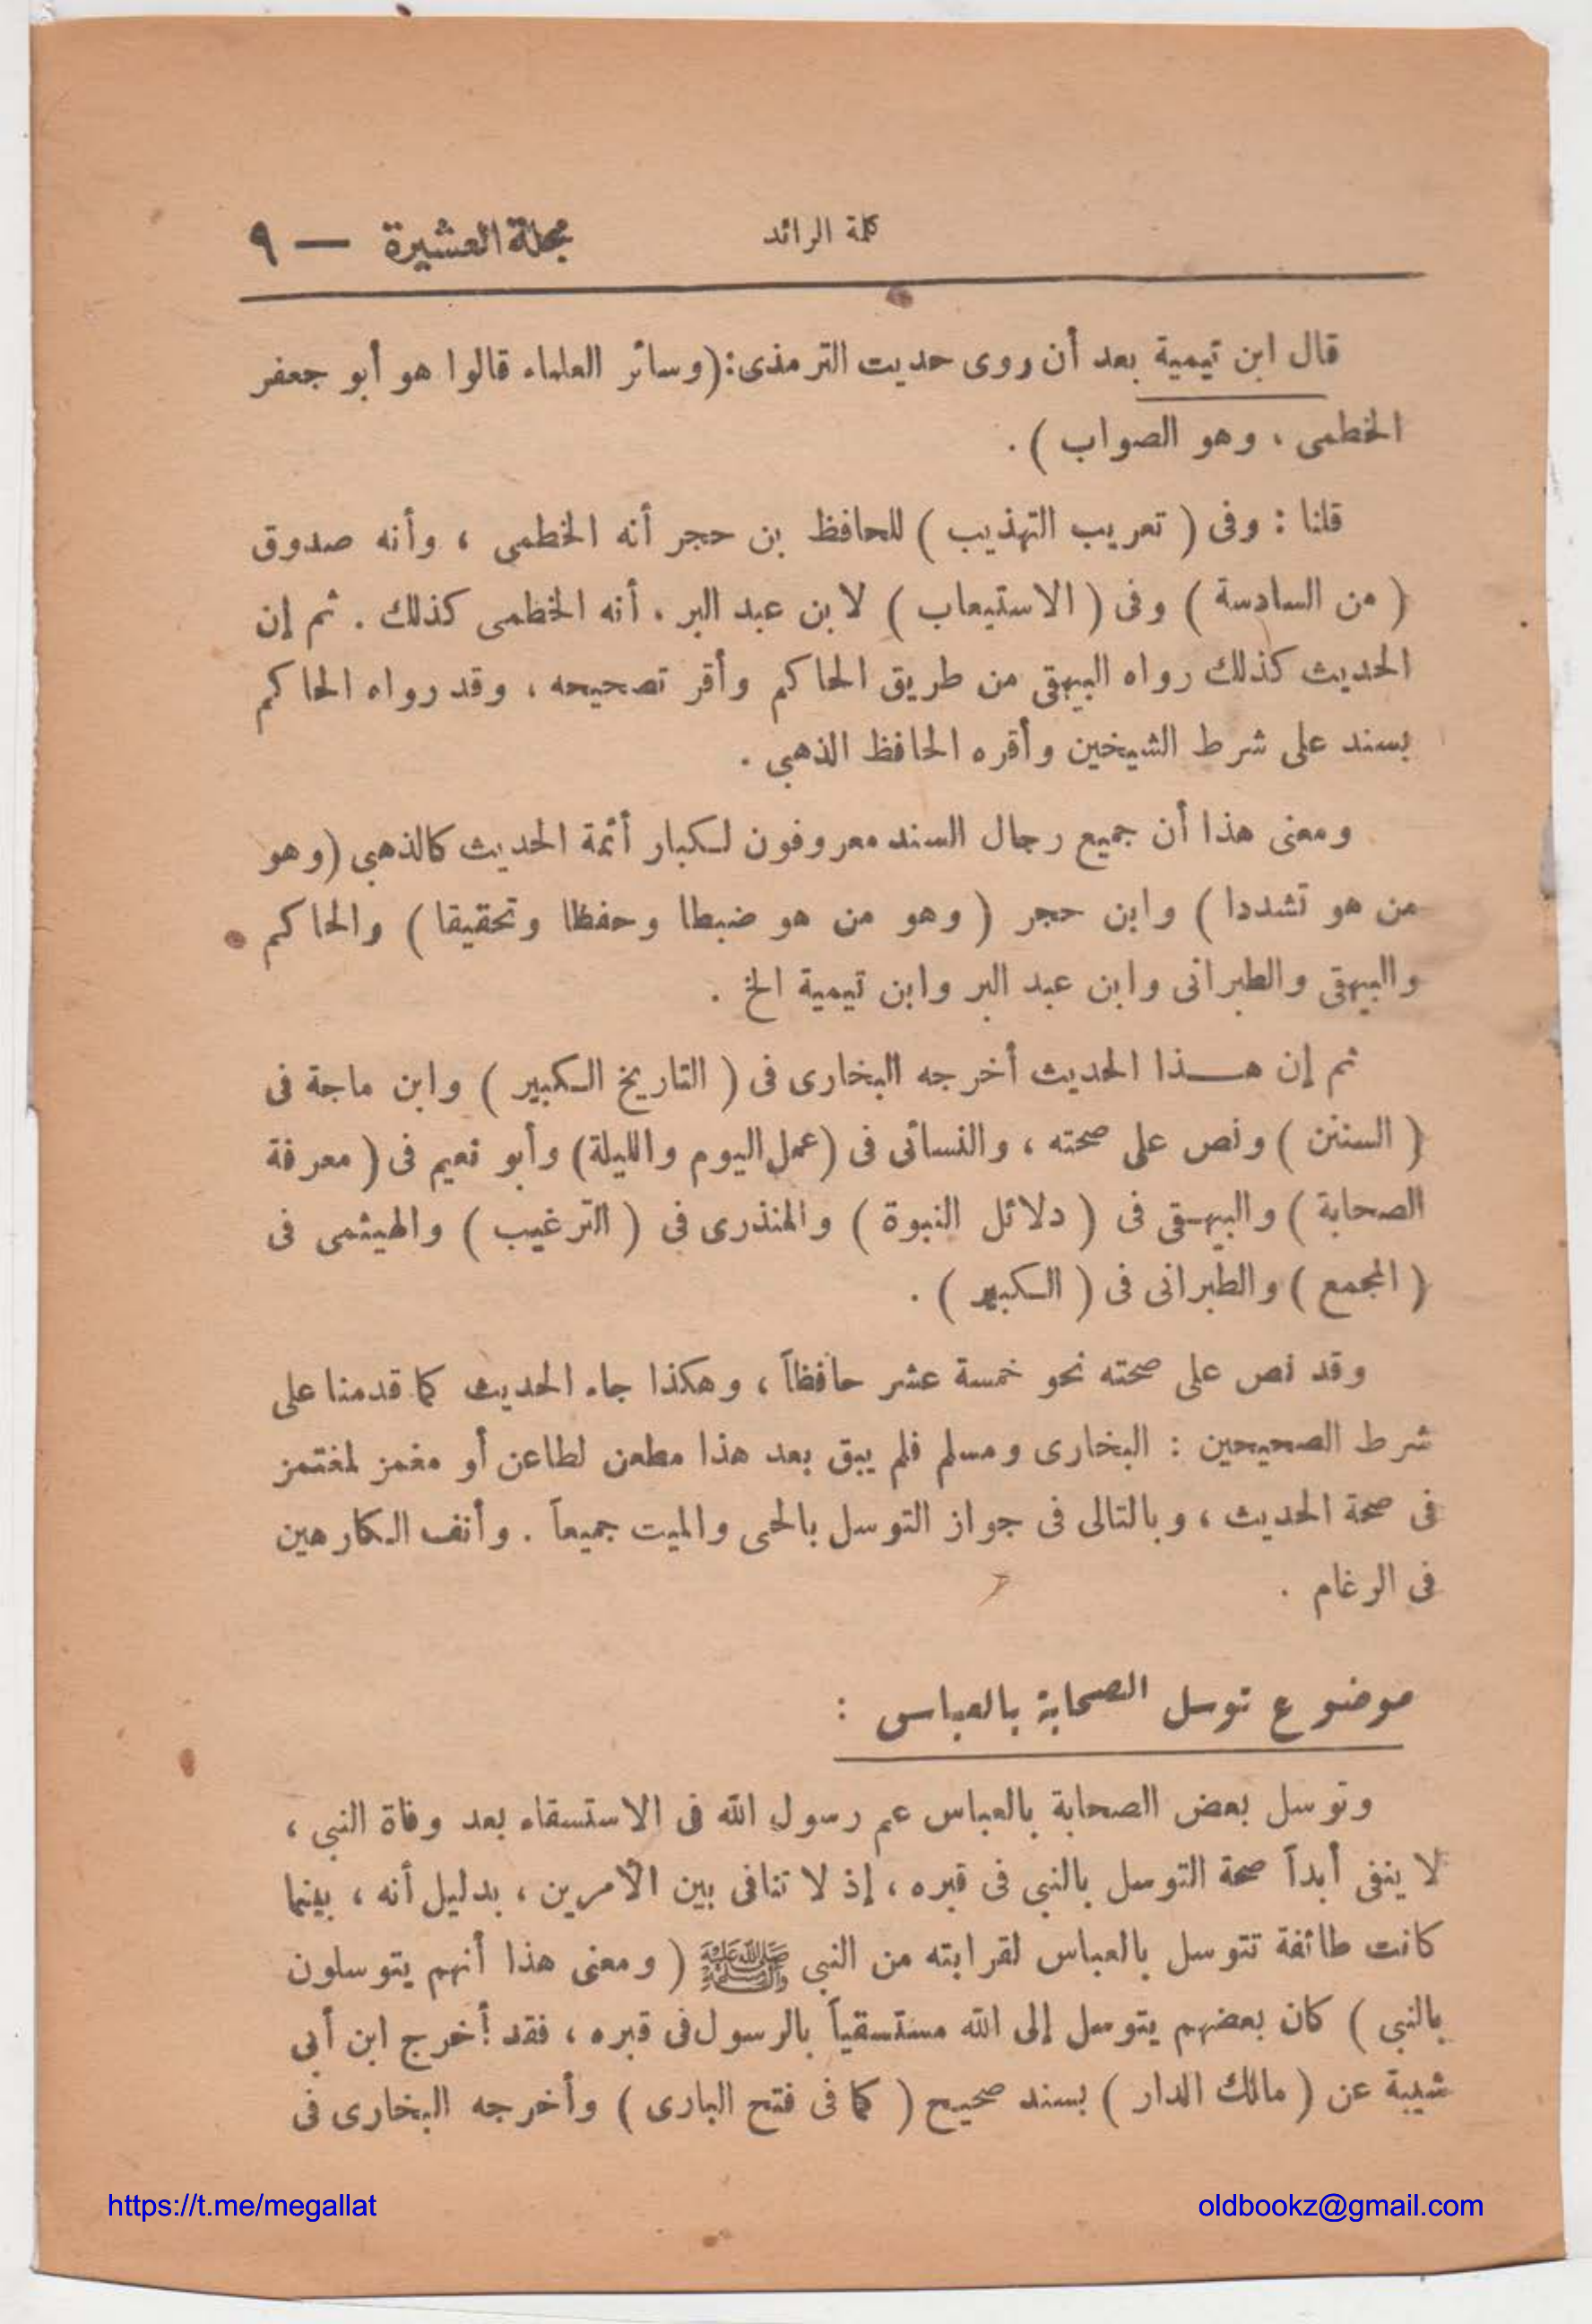 كلمة الرائد
مجلة العشيرة — ٩
قال ابن تيمية بعد أن روى حديث الترمذى: (وسائر العلماء قالوا هو أبو جعفر
الخطمى ، وهو الصواب ) .
قلنا : وفى ( تعريب التهذيب ) للحافظ بن حجر أنه الخطمى ، وأنه صدوق
( من السادسة ) وفى ( الاستيعاب ) لابن عبد البر . أنه الخطمى كذلك . ثم إن
الحديث كذلك رواه البيهقى من طريق الحاكم وأقر تصحيحه ، وقد رواه الحاكم
بسند على شرط الشيخين وأقره الحافظ الذهبى .
ومعنى هذا أن جميع رجال السند معروفون لكبار أئمة الحديث كالذهبى (وهو
من هو تشددا ) وابن حجر ( وهو من هو ضبطا وحفظا وتحقيقا ) والحاكم
والبيهقى والطبرانى وابن عبد البر وابن تيمية الخ .
ثم إن هـذا الحديث أخرجه البخارى فى ( التاريخ الكبير ) وابن ماجة فى
( السنن ) ونص على صحته ، والنسائى فى (عمل اليوم والليلة) وأبو نعيم فى ( معرفة
الصحابة ) والبيهقى فى ( دلائل النبوة ) والمنذرى فى ( الترغيب ) والهيثمى فى
( المجمع ) والطبرانى فى ( الكبير ) .
وقد نص على صحته نحو خمسة عشر حافظاً ، وهكذا جاء الحديث كما قدمنا على
شرط الصحيحين : البخارى ومسلم فلم يبق بعد هذا مطعن لطاعن أو مغمز لمغتمز
فى صحة الحديث ، وبالتالى فى جواز التوسل بالحى والميت جميعاً . وأنف الكارهين
فى الرغام .
موضوع توسل الصحابة بالعباس :
وتوسل بعض الصحابة بالعباس عم رسول الله فى الاستسقاء بعد وفاة النبى ،
لا ينفى أبداً صحة التوسل بالنبى فى قبره ، إذ لا تنافى بين الأمرين ، بدليل أنه ، بينما
كانت طائفة تتوسل بالعباس لقرابته من النبى ﷺ ( ومعنى هذا أنهم يتوسلون
بالنبى ) كان بعضهم يتوسل إلى الله مستسقياً بالرسول فى قبره ، فقد أخرج ابن أبى
شيبة عن ( مالك الدار ) بسند صحيح ( كما فى فتح البارى ) وأخرجه البخارى فى
https://t.me/megallat
oldbookz@gmail.com